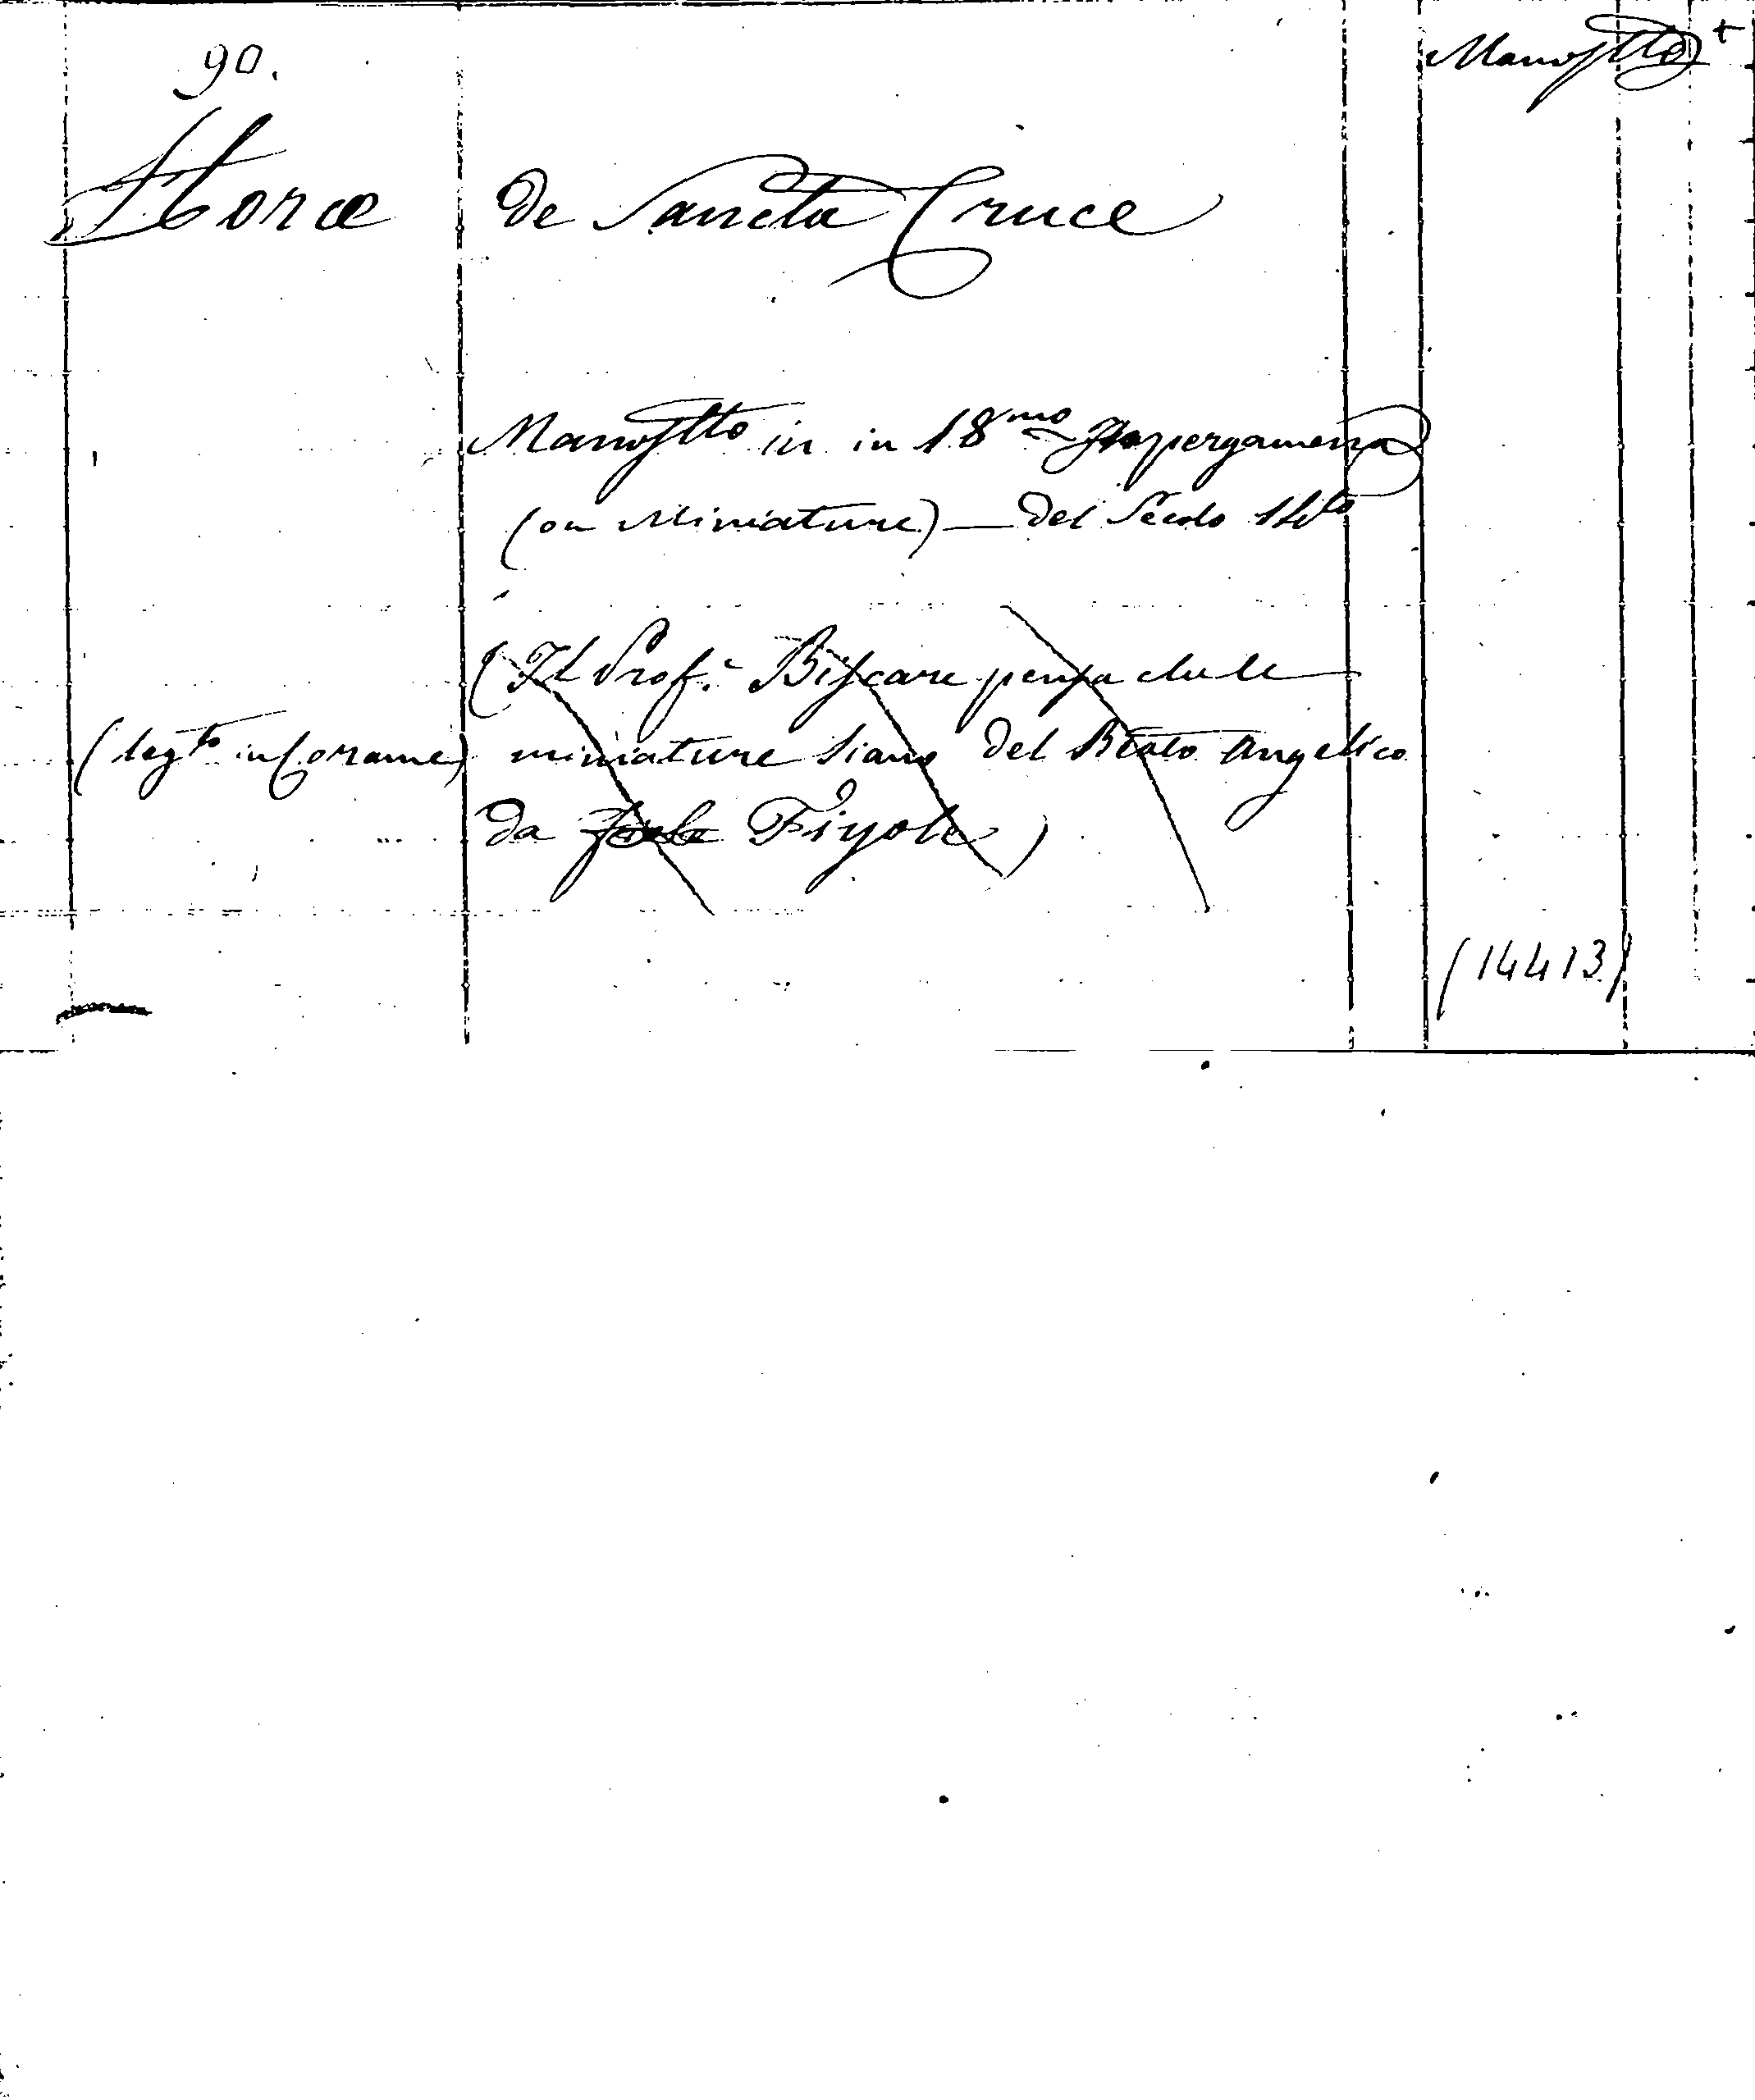 90.
Manosctto +
Horæ de Sancta Cruce
Manosctto in in 18mo pergamena
(con Miniature) — del Secolo
(Il Prof.e Biscare pensa che le
(legto in Corame) miniature siano del Beato Angelico
da Fiesole Fiyole)
(14413)